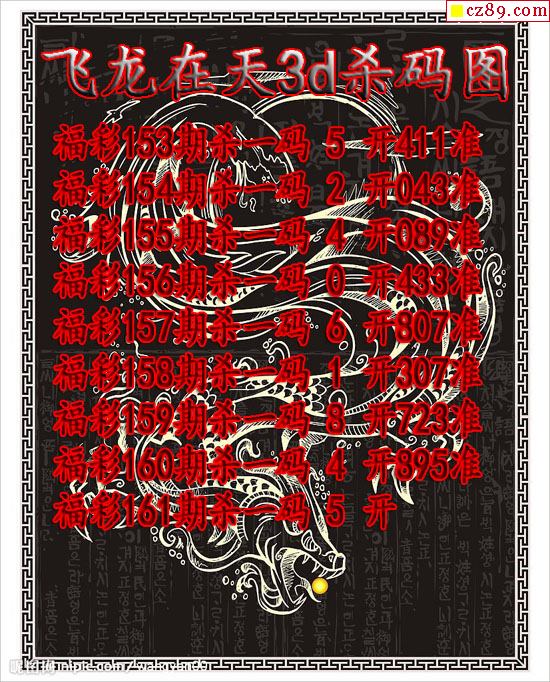 cz89.com
飞龙在天3d杀码图
福彩153期杀一码 5 开411准
福彩154期杀一码 2 开043准
福彩155期杀一码 4 开089准
福彩156期杀一码 0 开433准
福彩157期杀一码 6 开807准
福彩158期杀一码 1 开307准
福彩159期杀一码 8 开723准
福彩160期杀一码 4 开895准
福彩161期杀一码 5 开